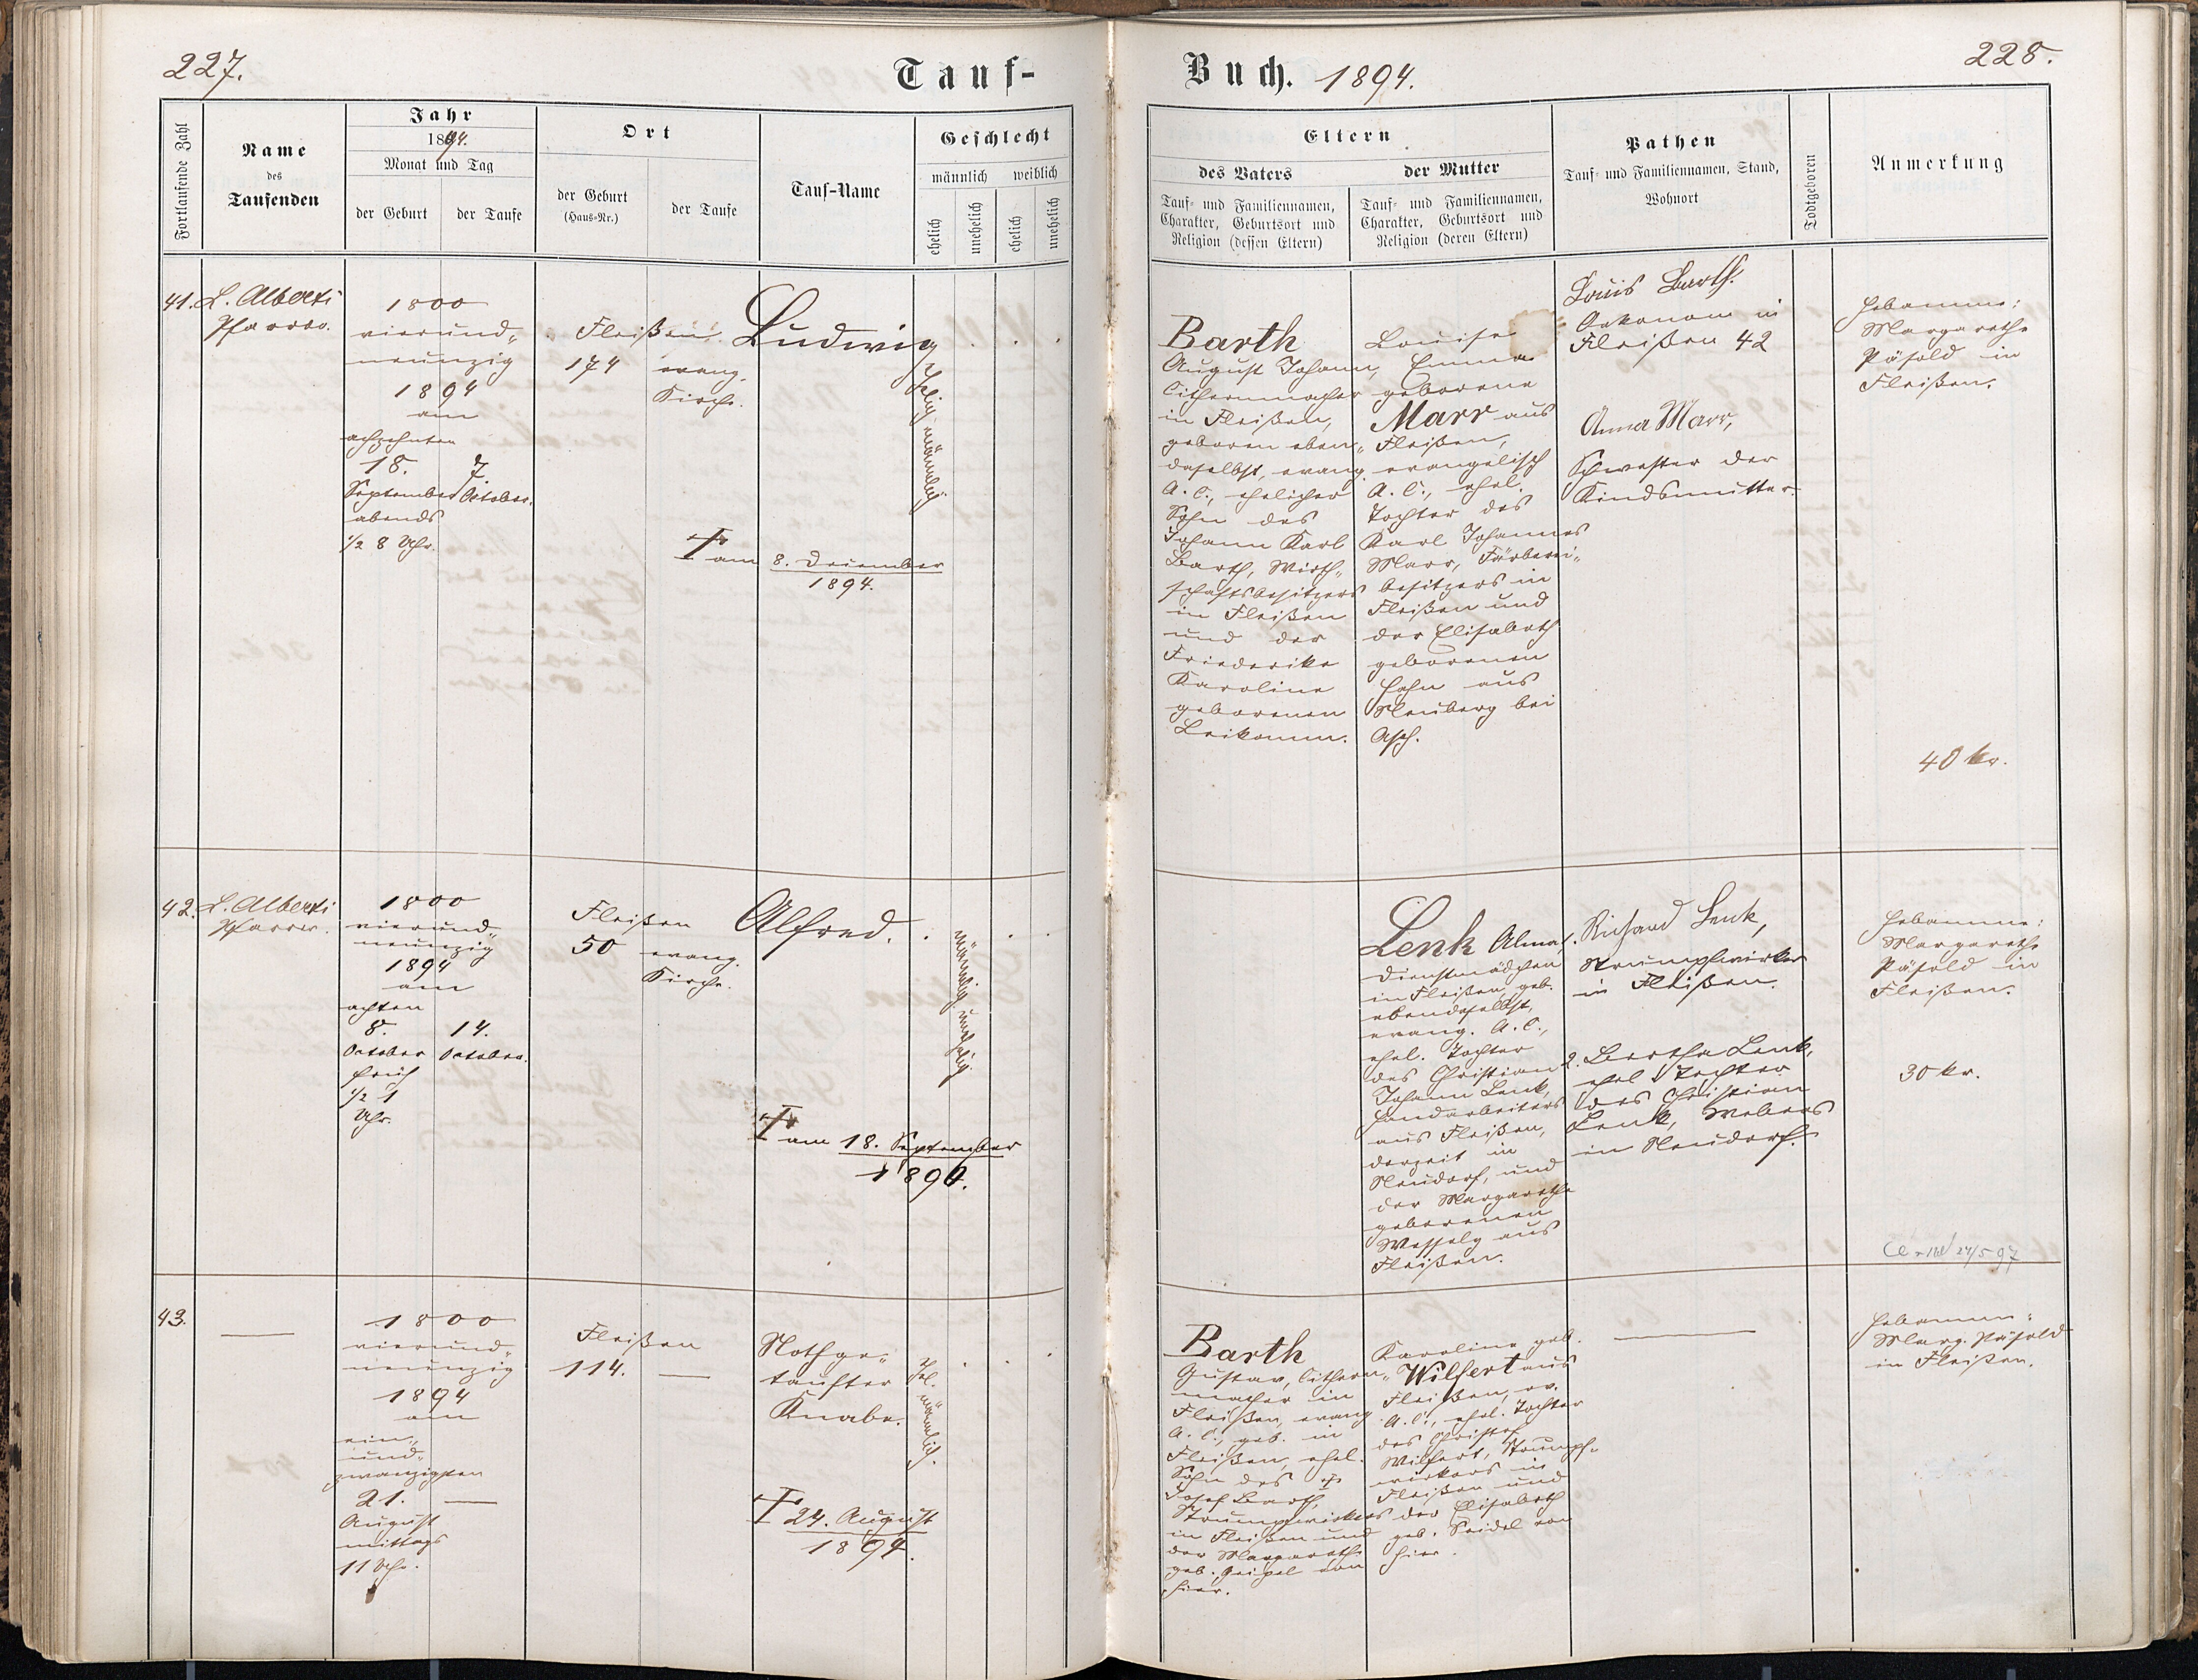 227.
Tauf-
Fortlaufende Zahl
Name
des
Taufenden
Jahr
1894.
Monat und Tag
der Geburt
der Taufe
Ort
der Geburt
(Haus-Nr.)
der Taufe
Tauf-Name
Geschlecht
männlich
weiblich
ehelich
unehelich
ehelich
unehelich
41.
L. Alberti
Pfarrer.
1800
vierund„
neunzig
1894
am
achzehnten
18.
September
abends
1/2 8 Uhr.
7.
October.
Fleißen
174
evang.
Kirche.
Ludwig
ehelig männlig
† am 8. December
1894.
42.
L. Alberti
Pfarrer.
1800
vierund„
neunzig
1894
am
achten
8.
October
früh
1/2 1
Uhr.
14.
October.
Fleißen
50
evang.
Kirche.
Alfred.
männlig unehelig
† am 18. September
43.
1800
vierund„
neunzig
1894
am
ein„
und„
zwanzigsten
21.
August
mittags
11 Uhr.
Fleißen
114.
Nothge„
taufter
Knabe.
ehel. männlich.
† 24. August
1894.
228.
Buch. 1894.
Eltern
des Vaters
Tauf- und Familiennamen,
Charakter, Geburtsort und
Religion (dessen Eltern)
der Mutter
Tauf- und Familiennamen,
Charakter, Geburtsort und
Religion (deren Eltern)
Pathen
Tauf- und Familiennamen, Stand,
Wohnort
Todtgeboren
Anmerkung
Barth
August Johann,
Cithernmacher
in Fleißen,
geboren eben„
daselbst, evang.
A. C., ehelicher
Sohn des
Johann Karl
Barth, Wirth„
schaftsbesitzers
in Fleißen
und der
Friederike
Karoline
geborenen
Leikamm.
Louise
Emma
geborene
Marr aus
Fleißen,
evangelisch
A. C., ehel.
Tochter des
Karl Johannes
Marr, Färberei„
besitzers in
Fleißen und
der Elisabeth
geborenen
Hahn aus
Neuberg bei
Asch.
Louis Barth.
Oekonom in
Fleißen 42
Anna Marr,
Schwester der
Kindsmutter.
Hebamme:
Margarethe
Päsold in
Fleißen.
40 kr.
Lenk Alma,
Dienstmädchen
in Fleißen, geb.
ebendaselbst,
evang. A. C.,
ehel. Tochter
des Christian
Johann Lenk,
Handarbeiters
aus Fleißen,
derzeit in
Neudorf, und
der Margarethe
geborenen
aus
Fleißen.
1. Richard Lenk,
Strumpfwirker
in Fleißen.
2. Bertha Lenk,
ehel. Tochter
des Christian
Lenk, Webers
in Neudorf.
Hebamme:
Margarethe
Päsold in
Fleißen.
30 kr.
24/5 97
Barth
Gustav, Cithern„
macher in
Fleißen, evang.
A. C., geb. in
Fleißen, ehel.
Sohn des †
Josef Barth,
Strumpfwirkers
in Fleißen und
der Margarethe
geb. Geipel von
hier.
Karoline geb.
Wilfert aus
Fleißen, ev.
A. C., ehel. Tochter
des Christof
Wilfert, Strumpf„
wirkers in
Fleißen und
der Elisabeth
geb. Seidel von
hier.
Hebamme:
Marg. Päsold
in Fleißen.